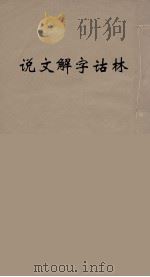 说文解字诂林
www.mtoou.info